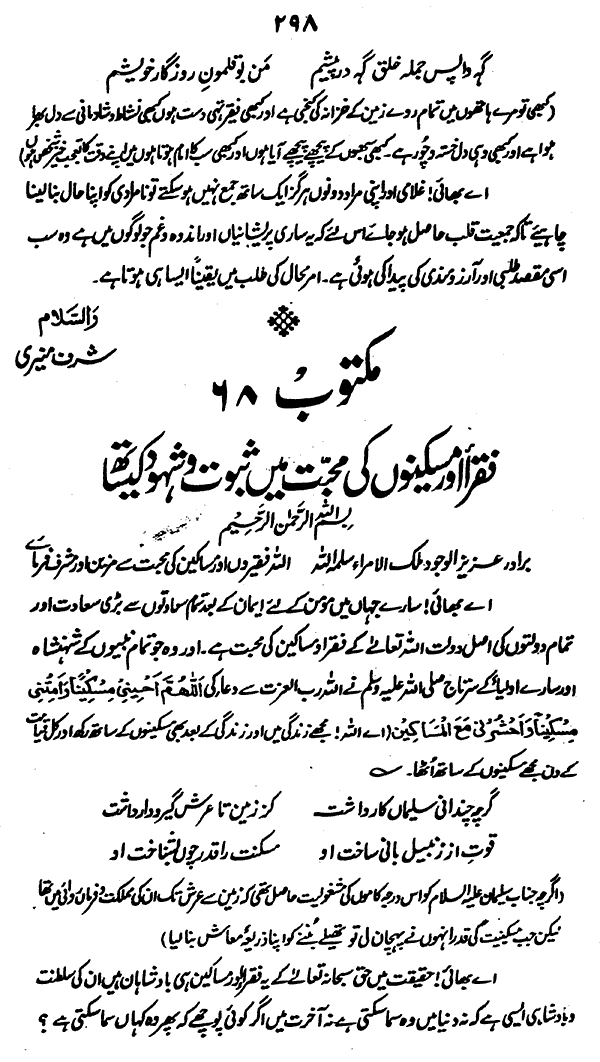 ۲۹۸
گہ واپس جملہ خلق گہ در پیشم من بوقلمونِ روزگار خویشم
(کبھی تو میرے ہاتھوں میں تمام روئے زمین کے خزانہ کی کنجی ہے اور کبھی فقیر تہی دست ہوں کبھی نشاط و شادمانی سے دل بھرا
ہوا ہے اور کبھی وہی دل خستہ و چُور ہے۔ کبھی سبھوں کے پیچھے پیچھے آیا ہوں اور کبھی سب کا امام ہوتا ہوں میں اپنے وقت کا عجیب خیز شخص ہوں)
اے بھائی! غلامی اور اپنی مراد دونوں ہرگز ایک ساتھ جمع نہیں ہو سکتے تو نامرادی کو اپنا حال بنا لینا
چاہیئے تاکہ جمعیت قلب حاصل ہو جائے اس لئے کہ یہ ساری پریشانیاں اور اندوہ و غم جو لوگوں میں ہے وہ سب
اسی مقصد طلبی اور آرزو مندی کی پیدا کی ہوئی ہے۔ امر محال کی طلب میں یقیناً ایسا ہی ہوتا ہے۔
والسّلام
شرف منیری
مکتوب ۶۸
فقرأ اور مسکینوں کی محبّت میں ثبوت و شہود کیساتھ
بسم اللہ الرّحمٰن الرّحیم
برادر عزیز الوجود ملک الامراء سلمہ اللہ اللہ فقیروں اور مساکین کی محبت سے مزین اور مشرف فرمائے
اے بھائی! سارے جہاں میں مؤمن کے لئے ایمان کے بعد تمام سعادتوں سے بڑی سعادت اور
تمام دولتوں کی اصل دولت اللہ تعالےٰ کے فقرا و مساکین کی محبت ہے۔ اور وہ جو تمام نبیوں کے شہنشاہ
اور سارے اولیاء کے سرتاج صلی اللہ علیہ وسلم نے اللہ رب العزت سے دعا کی اَللّٰھُمَّ اَحْیِنِیْ مِسْکِیْنًا وَاَمِتْنِیْ
مِسْکِیْنًا وَاحْشُرْنِیْ مَعَ الْمَسَاکِیْنِ (اے اللہ! مجھے زندگی میں اور زندگی کے بعد بھی مسکینوں کے ساتھ رکھ اور کل قیامت
کے دن مجھے مسکینوں کے ساتھ اُٹھا۔
گرچہ چندانی سلیماں کار داشت کز زمین تا عرش گیر و دار داشت
قوتِ او ز زنبیل بانی ساخت او مسکنت را قدر چوں بشناخت او
(اگرچہ جناب سلیمان علیہ السلام کو اس درجہ کاموں کی مشغولیت حاصل تھی کہ زمین سے عرش تک ان کی مملکت و فرماں روائی میں تھا
لیکن جب مسکینیت کی قدر انہوں نے پہچان لی تو تھیلے بُننے کو اپنا ذریعۂ معاش بنا لیا)
اے بھائی! حقیقت میں حق سبحانہ تعالےٰ کے یہ فقرا اور مساکین ہی بادشاہان ہیں ان کی سلطنت
و بادشاہی ایسی ہے کہ نہ دنیا میں وہ سما سکتی ہے نہ آخرت میں اگر کوئی پوچھے کہ پھر وہ کہاں سما سکتی ہے؟